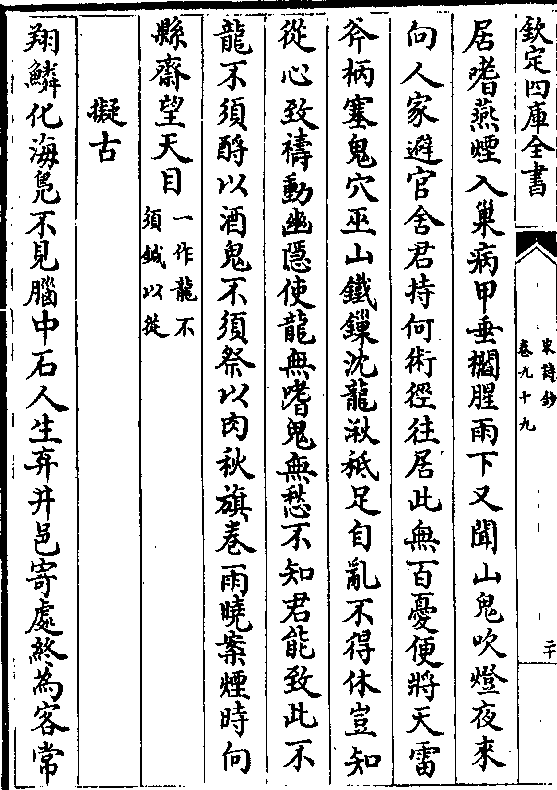 欽定四庫全書
宋詩鈔
卷九十九
二十
居嗜燕煙入巢病甲垂𣠄腥雨下又聞山鬼吹燈夜來
向人家避官舍君持何術徑往居此無百憂便將天雷
斧柄塞鬼穴巫山鐵鏁沈龍湫秪足自亂不得休豈知
從心致禱動幽隱使龍無嗜鬼無愁不知君能致此不
龍不須酹以酒鬼不須祭以肉秋旗卷雨曉案煙時向
縣齋望天目一作龍不
須鍼以從
擬古
翔鱗化海鳧不見腦中石人生弃井邑寄處終為客常